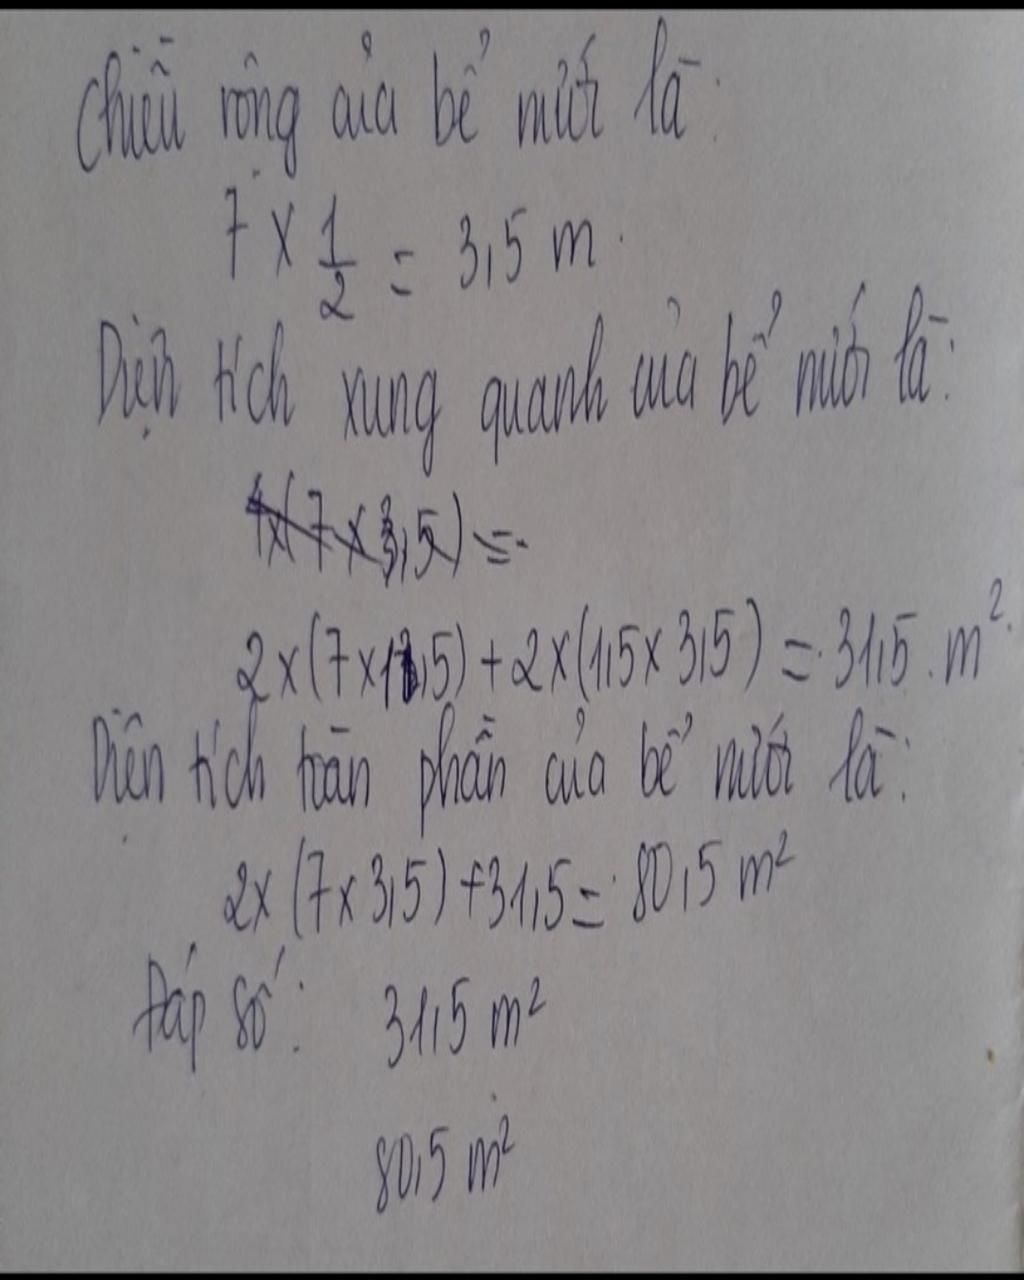 Chiều rộng của bể nước là:
7 x 1/2 = 3,5 m.
Diện tích xung quanh của bể nước là:
4x(7 x 3,5) =
2 x (7 x 1,5) + 2 x (1,5 x 3,5) = 31,5 m².
Diện tích toàn phần của bể nước là:
2x (7 x 3,5) + 31,5 = 80,5 m²
Đáp số: 31,5 m²
80,5 m²